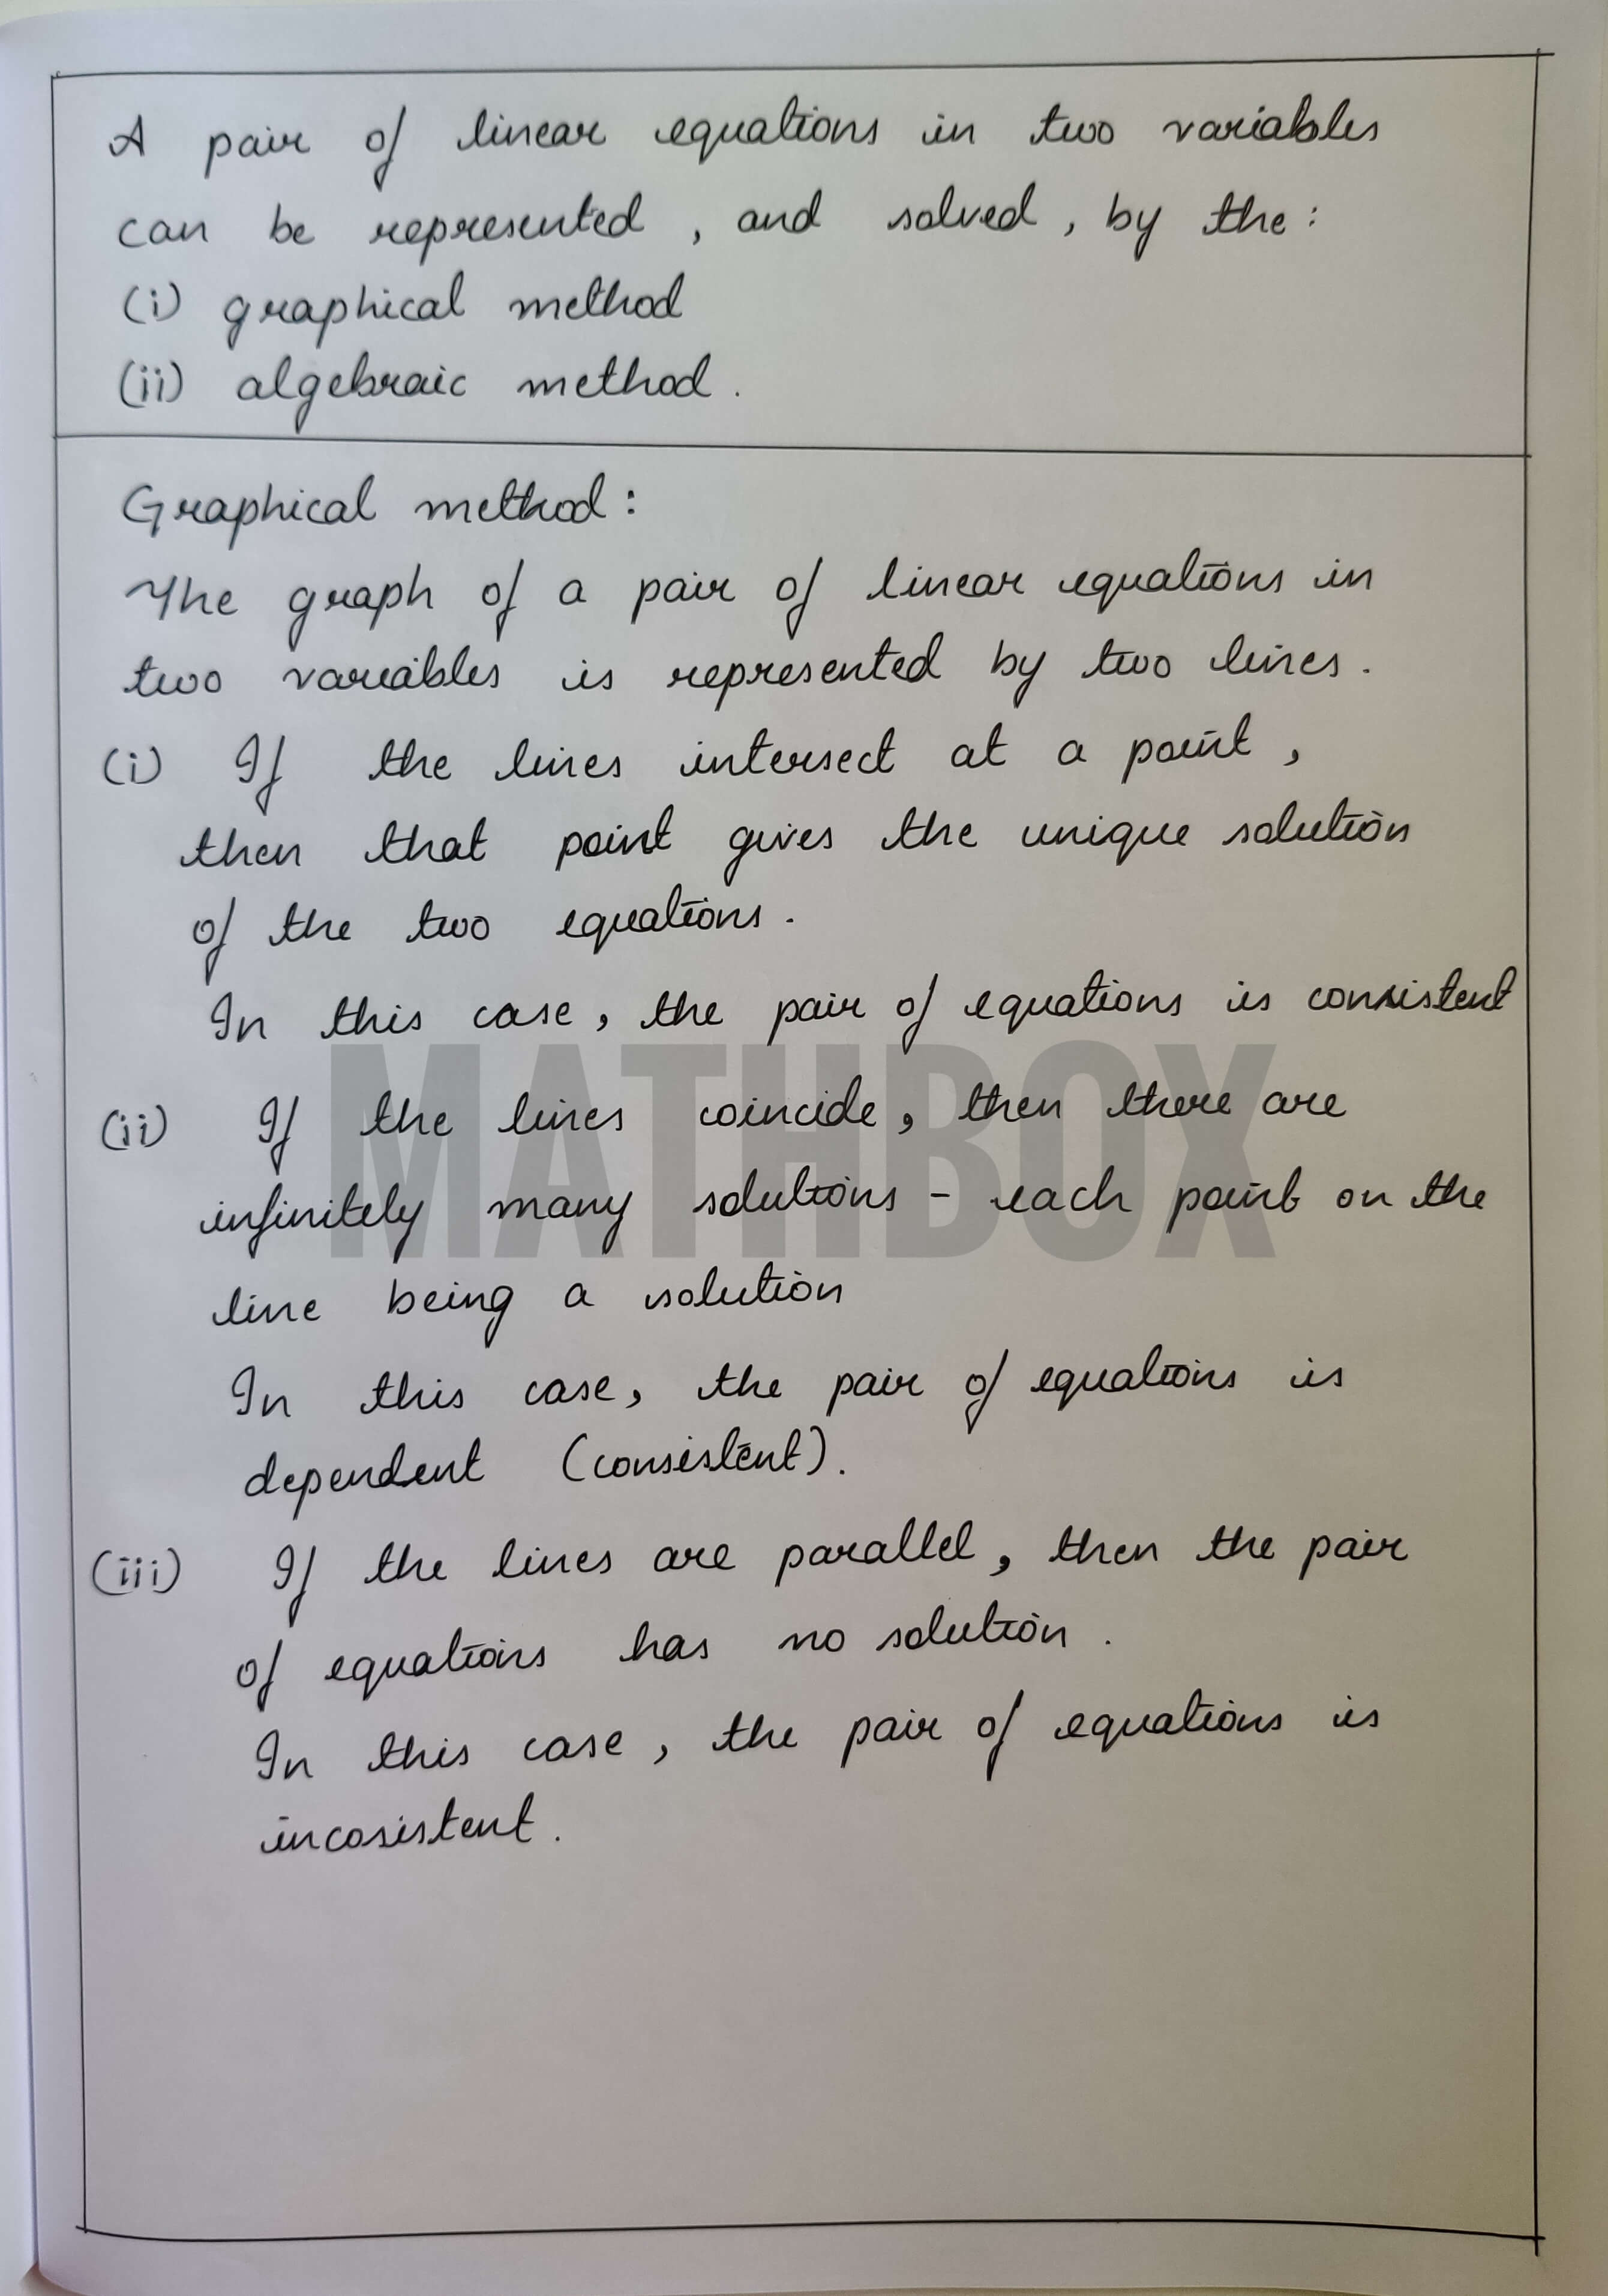 A pair of linear equations in two variables
can be represented, and solved, by the:
(i) graphical method
(ii) algebraic method.
Graphical method:
The graph of a pair of linear equations in
two variables is represented by two lines.
(i) If the lines intersect at a point,
then that point gives the unique solution
of the two equations.
In this case, the pair of equations is consistent
MATHBOX
(ii) If the lines coincide, then there are
infinitely many solutions - each point on the
line being a solution
In this case, the pair of equations is
dependent (consistent).
(iii) If the lines are parallel, then the pair
of equations has no solution.
In this case, the pair of equations is
incosistent.